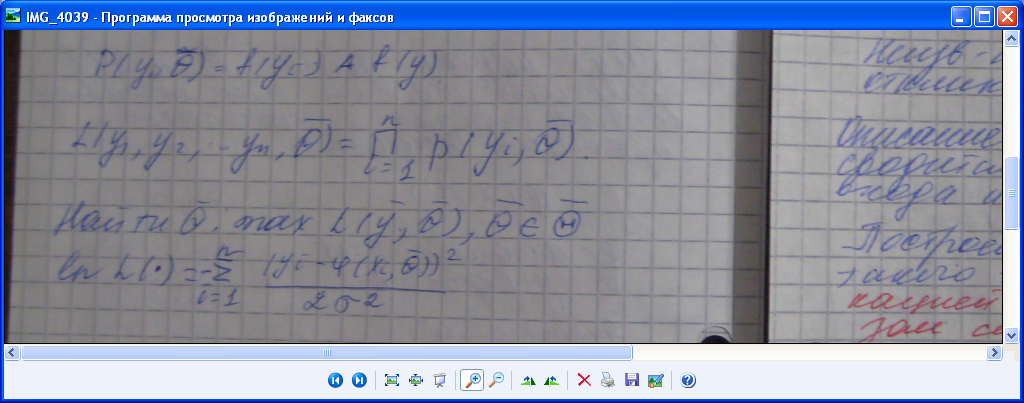 IMG_4039 - Программа просмотра изображений и факсов
P(y, θ̄) = f(yi) A f(y)
L(y₁, y₂, ... yn, θ̄) = ∏ i=1 n p(yi, θ̄).
Найти θ̄. max L(ȳ, θ̄), θ̄ ∈ Θ̄
ln L(•) = -∑ i=1 n (yi - φ(xi, θ̄))² / 2σ²
Описание
сводится
входа и
Построе
такого